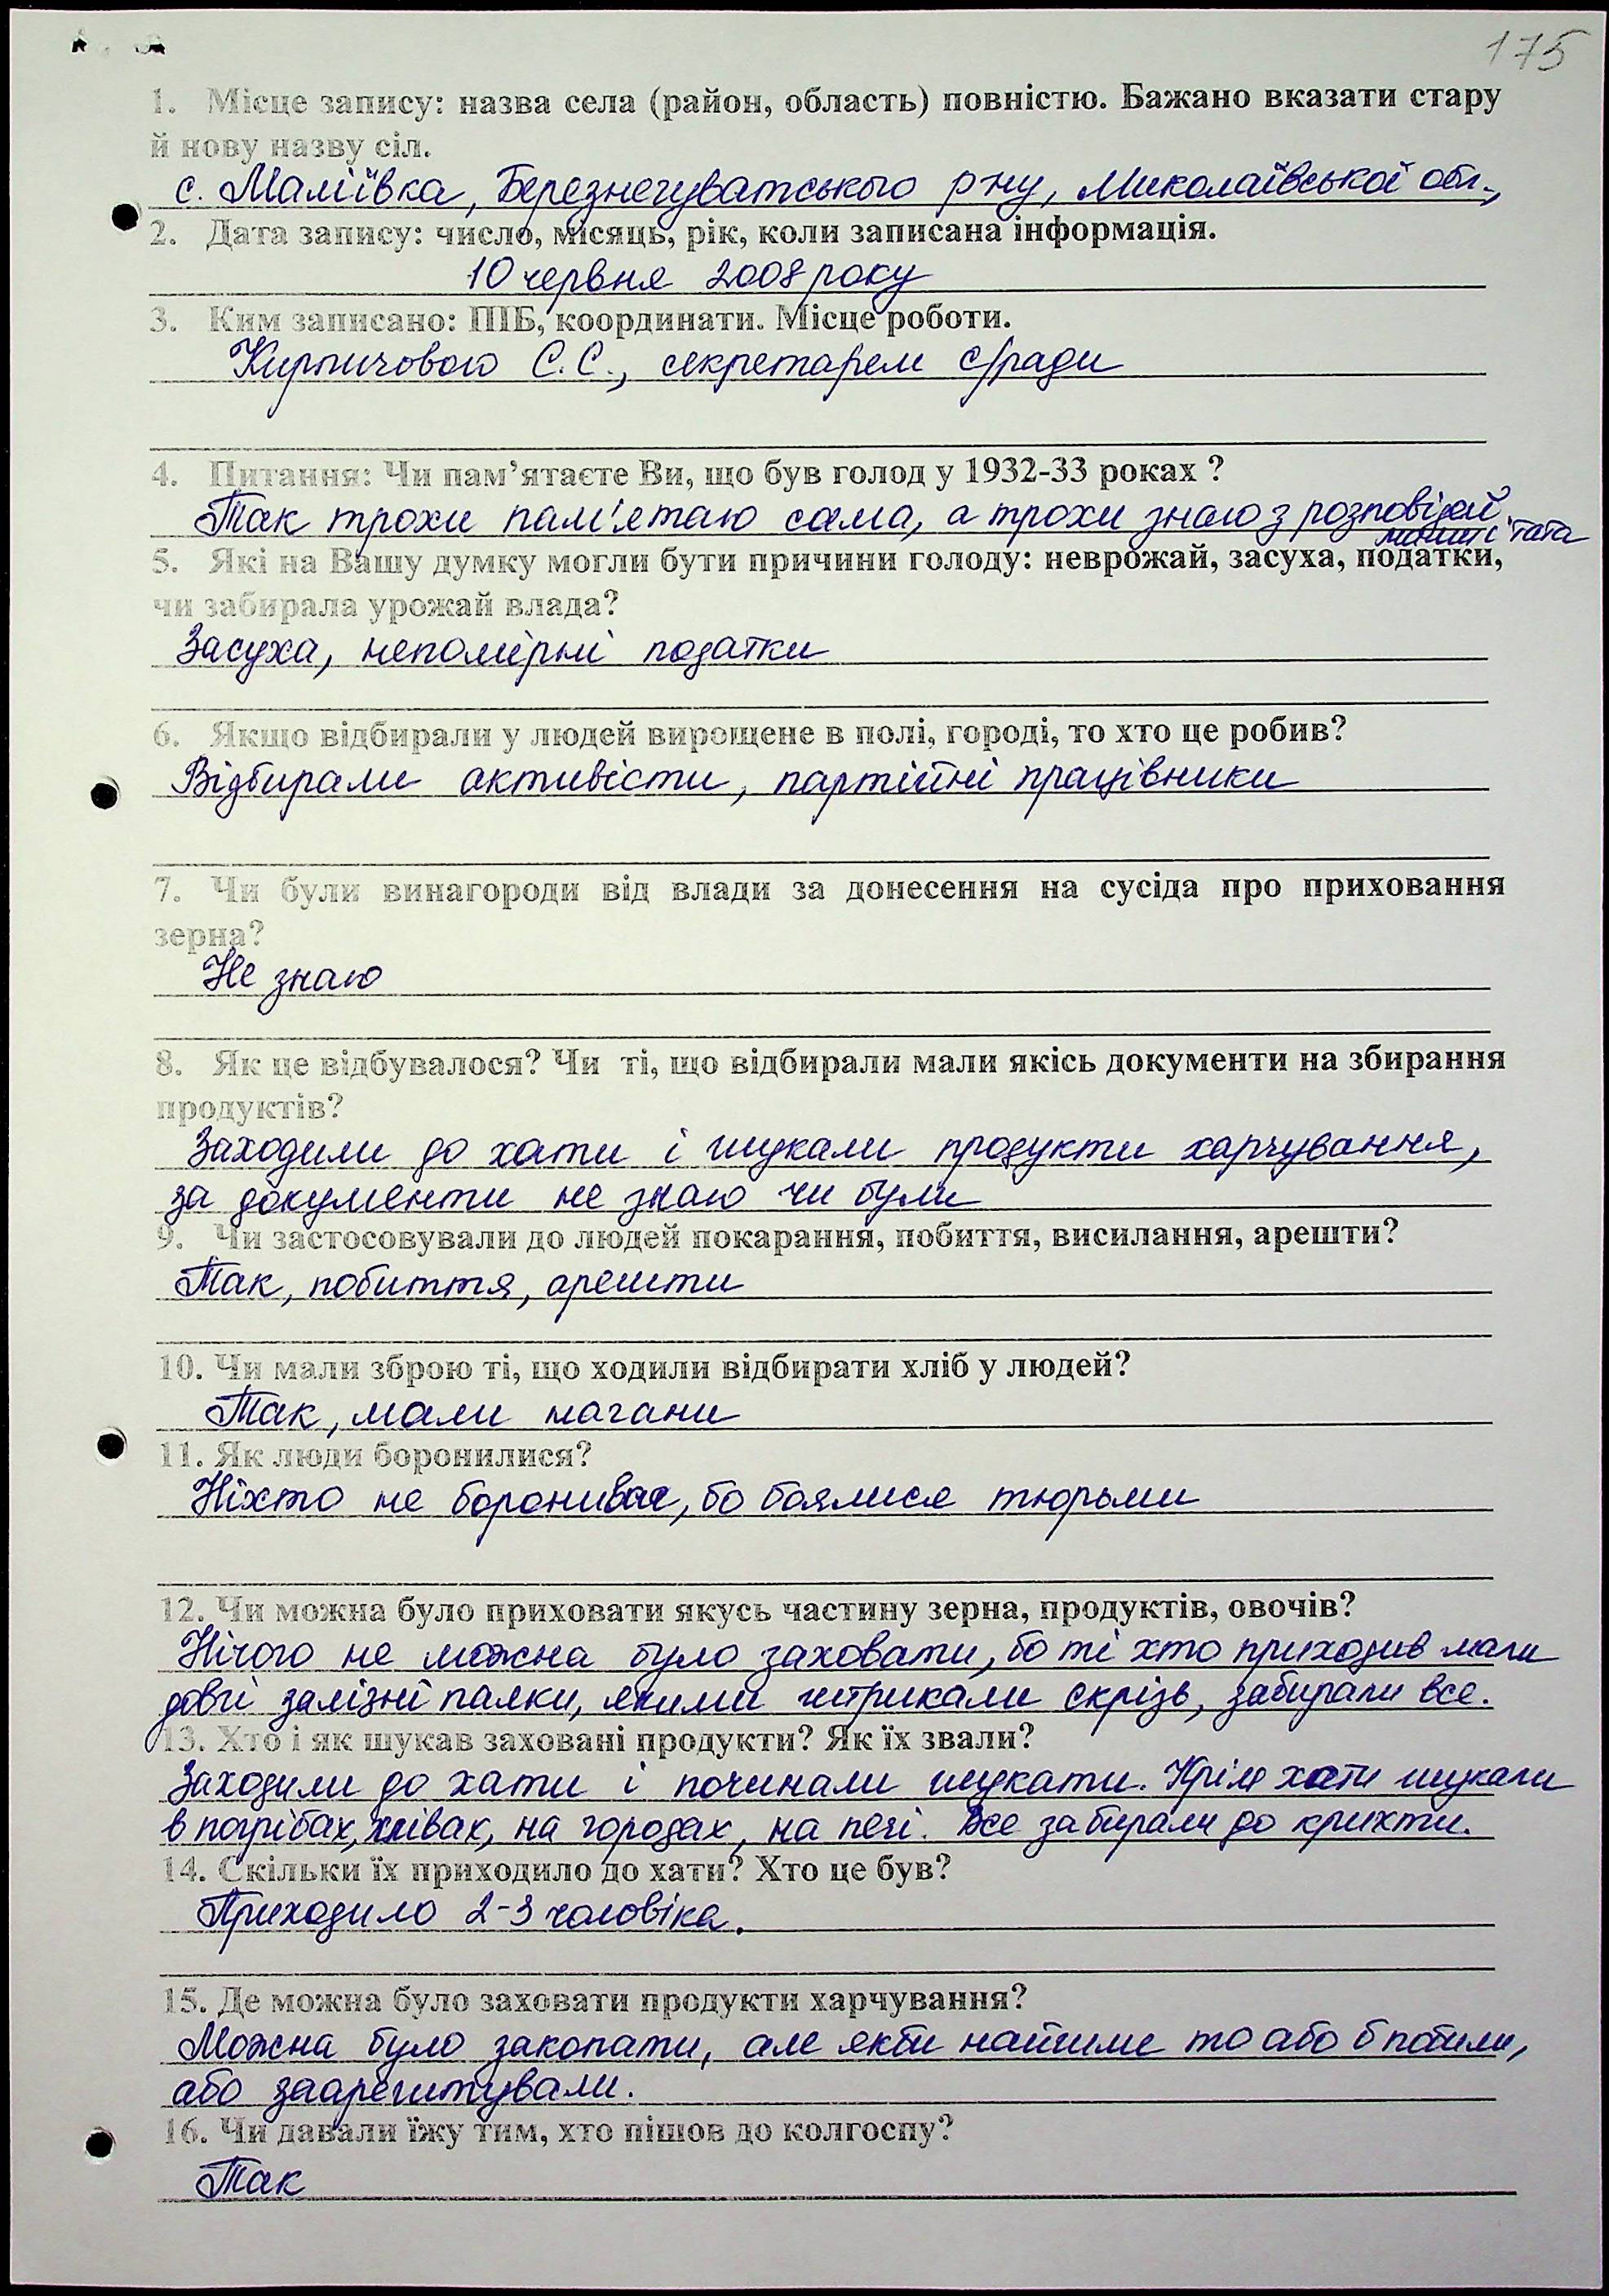 175
1. Місце запису: назва села (район, область) повністю. Бажано вказати стару
й нову назву сіл.
с. Маліївка, Березнегуватського р-ну, Миколаївської обл.,
2. Дата запису: число, місяць, рік, коли записана інформація.
10 червня 2008 року
3. Ким записано: ПІБ, координати. Місце роботи.
Кирпичовою С.С., секретарем с/ради
4. Питання: Чи пам’ятаєте Ви, що був голод у 1932-33 роках ?
Так трохи пам'ятаю сама, а трохи знаю з розповідей
мами і тата
5. Які на Вашу думку могли бути причини голоду: неврожай, засуха, податки,
чи забирала урожай влада?
Засуха, непомірні податки
6. Якщо відбирали у людей вирощене в полі, городі, то хто це робив?
Відбирали активісти, партійні працівники
7. Чи були винагороди від влади за донесення на сусіда про приховання
зерна?
Не знаю
8. Як це відбувалося? Чи ті, що відбирали мали якісь документи на збирання
продуктів?
Заходили до хати і шукали продукти харчування,
за документи не знаю чи були
9. Чи застосовували до людей покарання, побиття, висилання, арешти?
Так, побиття, арешти
10. Чи мали зброю ті, що ходили відбирати хліб у людей?
Так, мали нагани
11. Як люди боронилися?
Ніхто не боронився, бо боялися тюрьми
12. Чи можна було приховати якусь частину зерна, продуктів, овочів?
Нічого не можна було заховати, бо ті хто приходив мали
довгі залізні палки, якими штрикали скрізь, забирали все.
13. Хто і як шукав заховані продукти? Як їх звали?
Заходили до хати і починали шукати. Крім хати шукали
в погрібах, хлівах, на городах, на печі. Все забирали до крихти.
14. Скільки їх приходило до хати? Хто це був?
Приходило 2-3 чоловіка.
15. Де можна було заховати продукти харчування?
Можна було закопати, але якби найшли то або б побили,
або заарештували.
16. Чи давали їжу тим, хто пішов до колгоспу?
Так